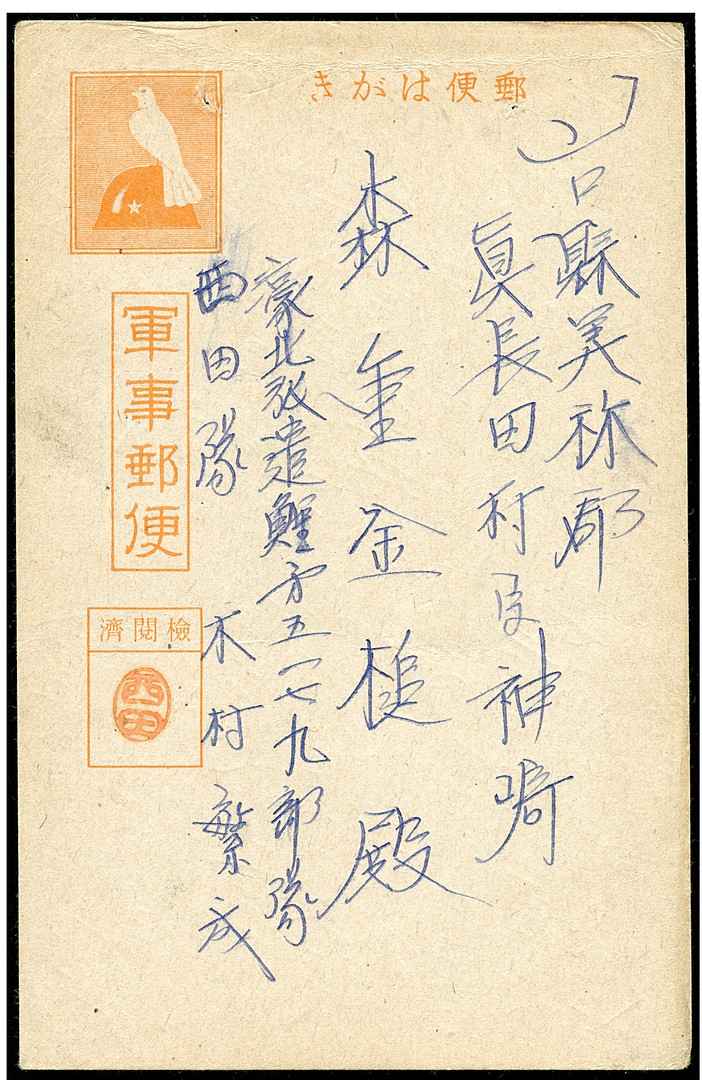 郵便はがき
山口縣美祢郡
眞長田村 神崎
森重金槌殿
濠北派遣鯉第五一七九部隊
西田隊 木村繁成
軍事郵便
檢閲濟
西田